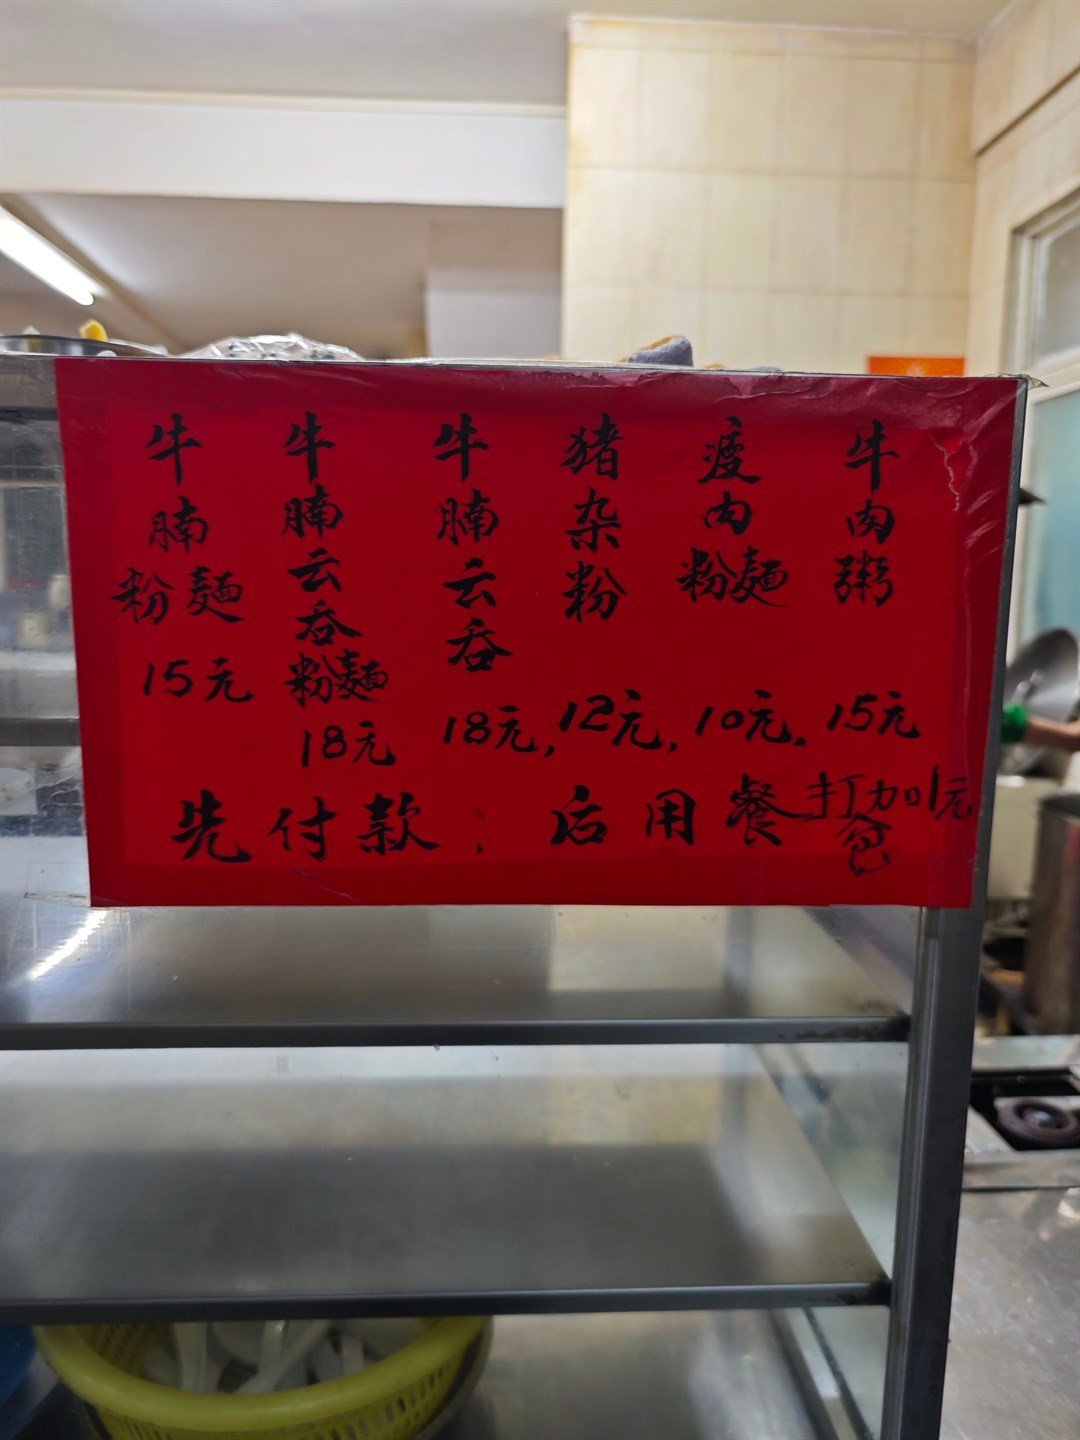 牛腩粉麵 15元
牛腩云吞粉麵 18元
牛腩云吞 18元,
猪杂粉 12元,
瘦肉粉麵 10元.
牛肉粥 15元
先付款,后用餐
打包加1元